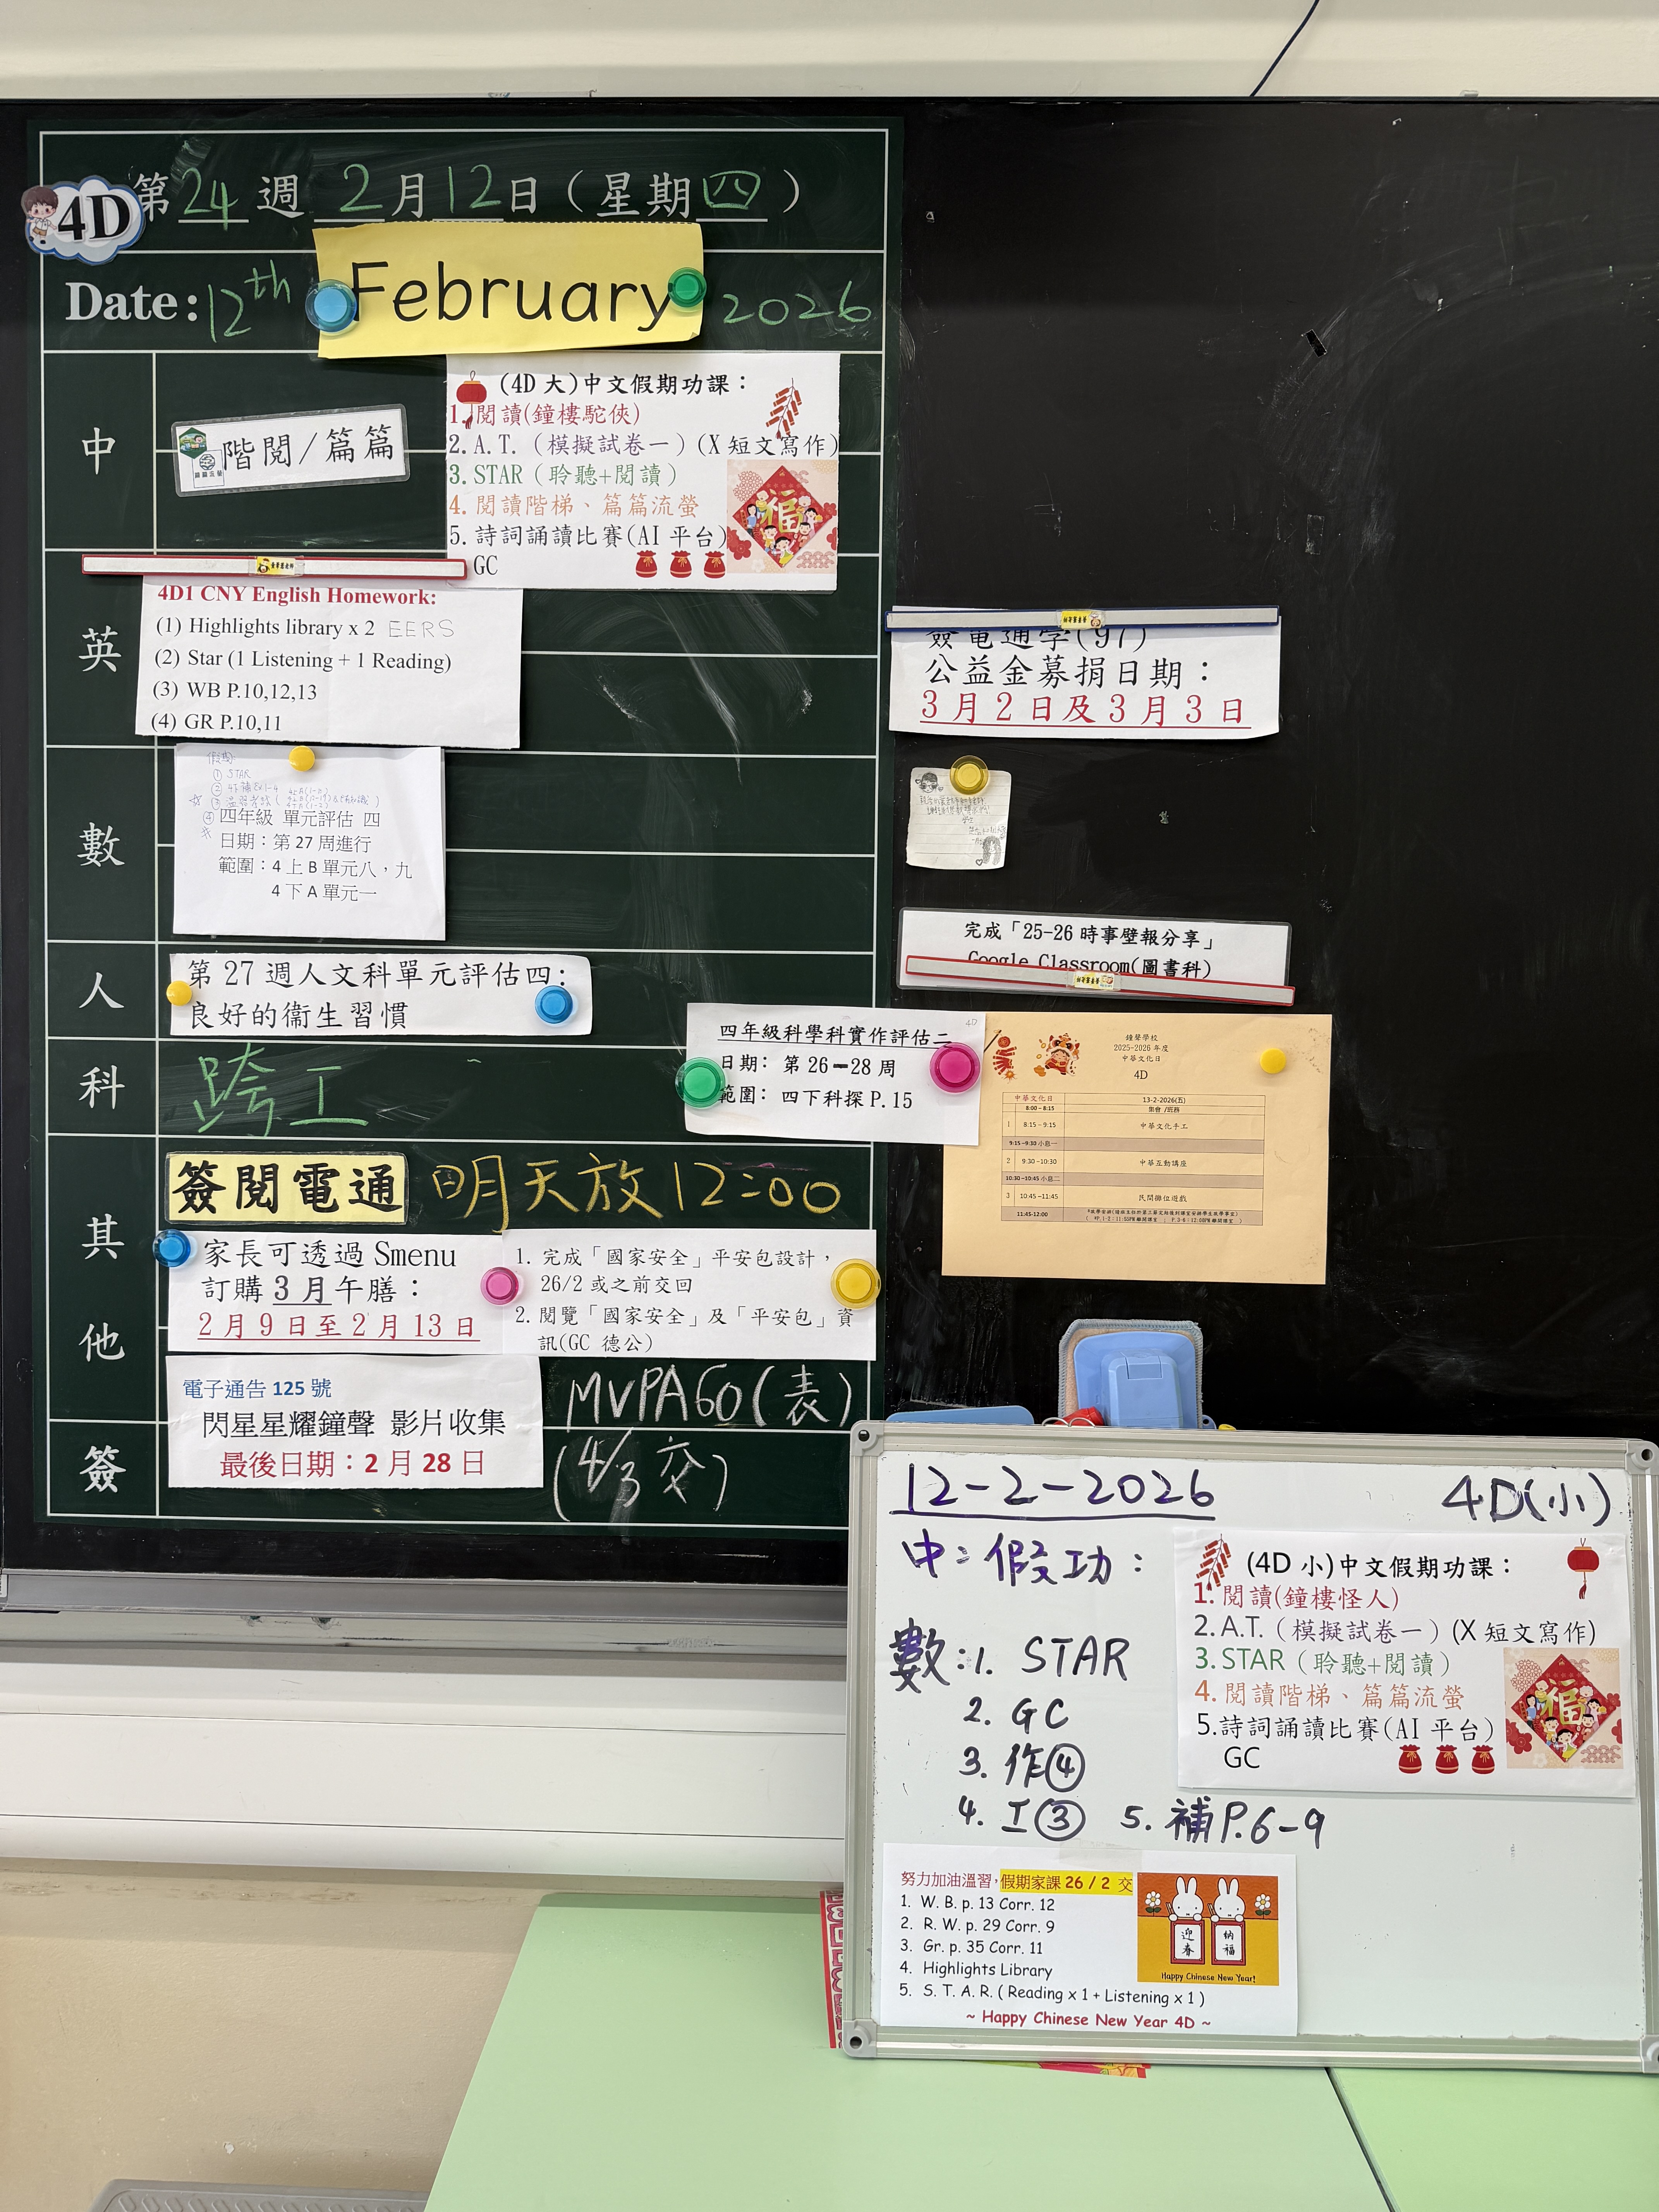 4D
第24週 2月12日（星期四）
Date: 12th February 2026
中
階閱/篇篇
(4D 大)中文假期功課：
1. 閱讀(鐘樓駝俠)
2. A.T.（模擬試卷一）(X 短文寫作)
3. STAR（聆聽+閱讀）
4. 閱讀階梯、篇篇流螢
5. 詩詞誦讀比賽(AI 平台)
GC
福
英
4D1 CNY English Homework:
(1) Highlights library x 2 EERS
(2) Star (1 Listening + 1 Reading)
(3) WB P.10,12,13
(4) GR P.10,11
數
假期:
① STAR
④ 四年級 單元評估 四
日期：第 27 周進行
範圍：4 上 B 單元八，九
4 下 A 單元一
人
第 27 週人文科單元評估四：
良好的衞生習慣
科
跨工
4D
四年級科學科實作評估二
日期: 第 26－28 周
範圍: 四下科探 P.15
其他
簽閱電通
明天放12:00
家長可透過 Smenu
訂購 3 月午膳：
2 月 9 日至 2 月 13 日
1. 完成「國家安全」平安包設計，
26/2 或之前交回
2. 閱覽「國家安全」及「平安包」資
訊(GC 德公)
電子通告 125 號
閃星星耀鐘聲 影片收集
最後日期：2 月 28 日
MVPA60(表)
(4/3 交)
簽
簽電通字(97)
公益金募捐日期：
3 月 2 日及 3 月 3 日
完成「25-26 時事壁報分享」
Google Classroom(圖書科)
鐘聲學校
2025-2026 年度
中華文化日
4D
中華文化日 13-2-2026(五)
8:00 – 8:15 集會 /班務
1 8:15 – 9:15 中華文化手工
9:15 –9:30 小息一
2 9:30 –10:30 中華互動講座
10:30 –10:45 小息二
3 10:45 –11:45 民間攤位遊戲
11:45-12:00
12-2-2026 4D(小)
中: 假功:
(4D 小)中文假期功課：
1. 閱讀(鐘樓怪人)
2. A.T.（模擬試卷一）(X 短文寫作)
3. STAR（聆聽+閱讀）
4. 閱讀階梯、篇篇流螢
5.詩詞誦讀比賽(AI 平台)
GC
福
數:1. STAR
2. GC
3. 作④
4. 工③ 5. 補P.6-9
努力加油溫習，假期家課 26 / 2 交
1. W. B. p. 13 Corr. 12
2. R. W. p. 29 Corr. 9
3. Gr. p. 35 Corr. 11
4. Highlights Library
5. S. T. A. R. ( Reading x 1 + Listening x 1 )
~ Happy Chinese New Year 4D ~
迎春
納福
Happy Chinese New Year!